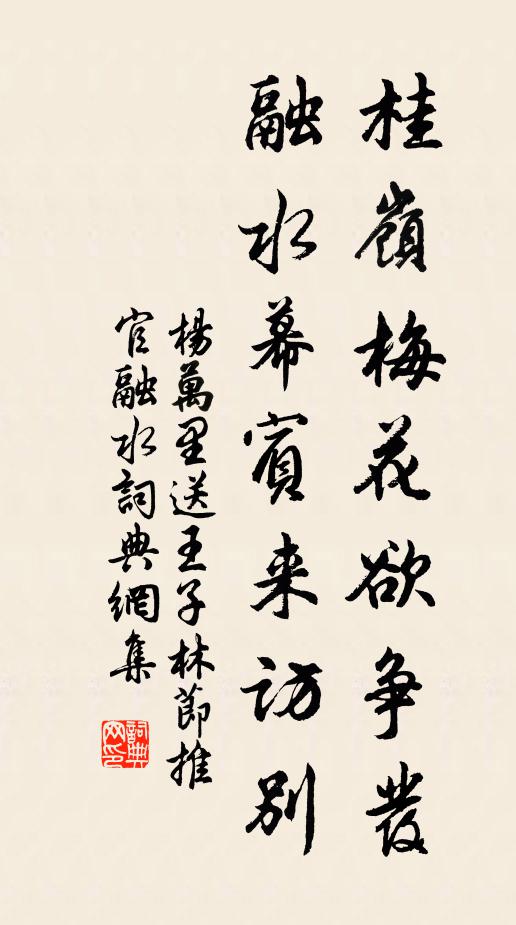 桂嶺梅花欲争發
融水幕賓来訪別
楊萬里送王子林節推
官融水詞典網集
詞典
网印